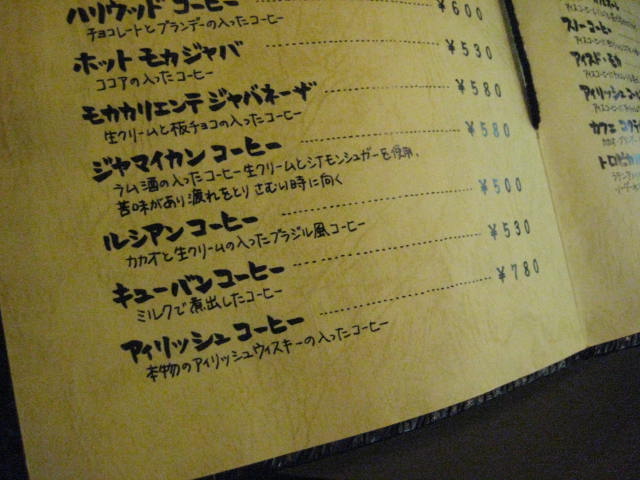 ハリウッド コーヒー ¥600
チョコレートとブランデーの入ったコーヒー
ホット モカジャバ ¥530
ココアの入ったコーヒー
モカカリエンテ ジャバネーザ ¥580
生クリームと板チョコの入ったコーヒー
ジャマイカン コーヒー ¥580
ラム酒の入ったコーヒー生クリームとシナモンシュガーを使用、
苦味があり疲れをとりさむい時に向く
ルシアンコーヒー ¥500
カカオと生クリームの入ったブラジル風コーヒー
キューバンコーヒー ¥530
ミルクで煮出したコーヒー
アイリッシュコーヒー ¥780
本物のアイリッシュウィスキーの入ったコーヒー
スノーコーヒー
アイスド・モカ
アイリッシュコーヒ
カフェ
トロピカ